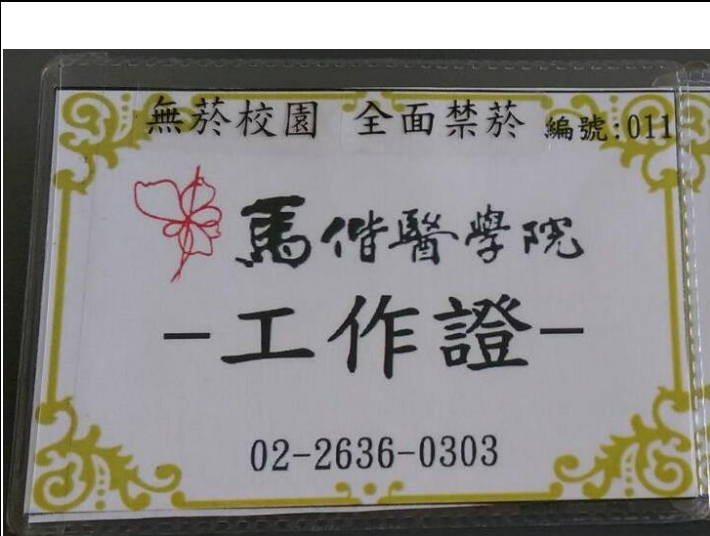 無菸校園 全面禁菸 編號:011
馬偕醫學院
-工作證-
02-2636-0303